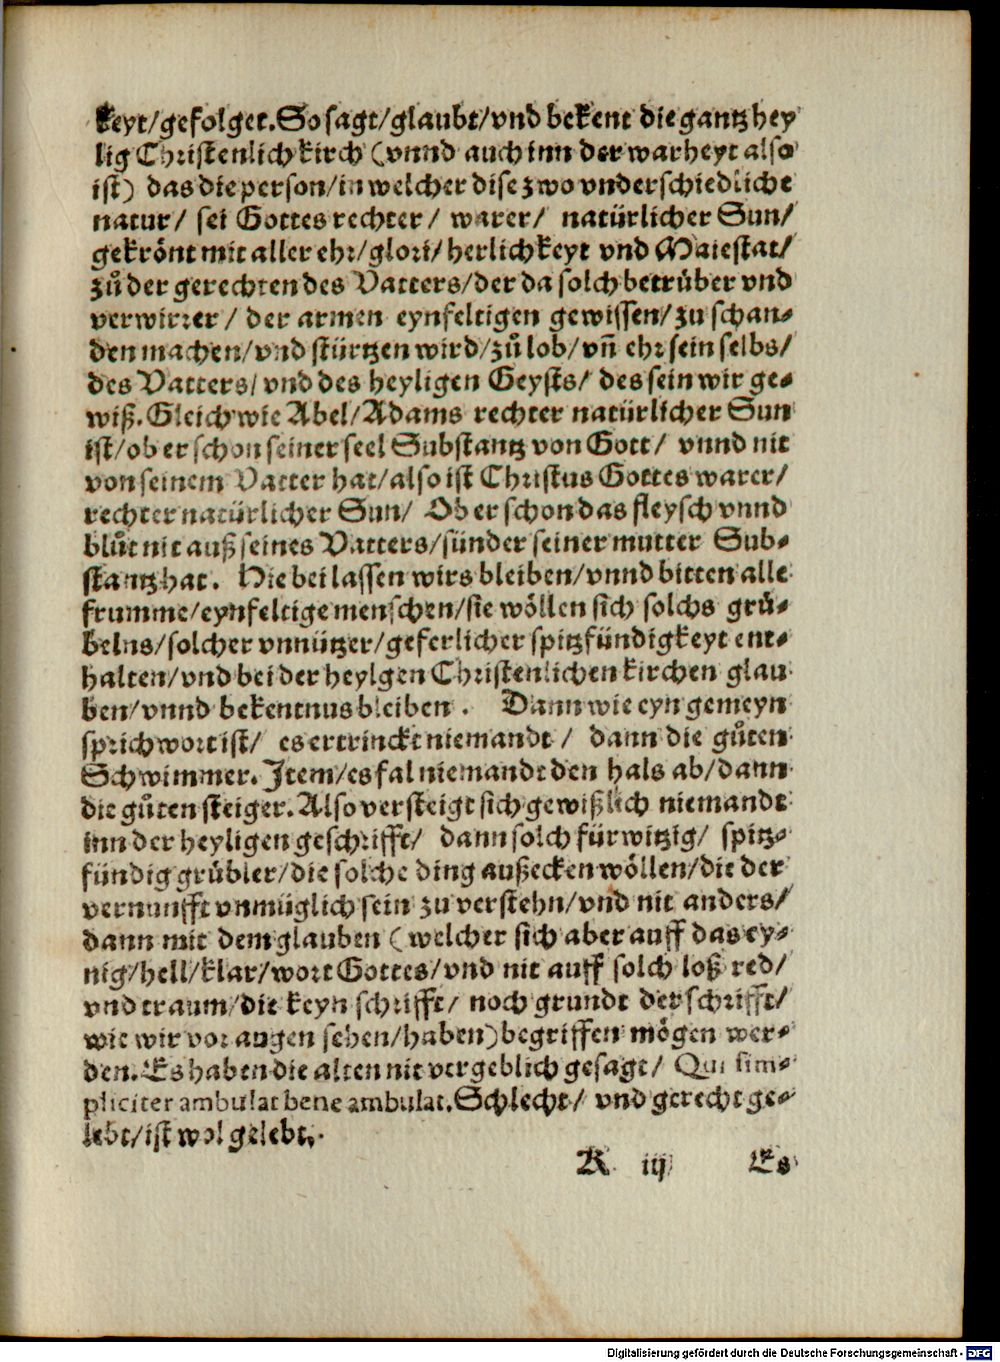 keyt/gefolget. So sagt/glaubt/vnd bekent die gantz hey
lig Christenlich kirch (vnnd auch inn der warheyt also
ist) das die person/in welcher dise zwo vnderschiedliche
natur/ sei Gottes rechter/ warer/ natürlicher Sun/
gekrönt mit aller ehr/glori/herlichkeyt vnd Maiestat/
zuͦ der gerechten des Vatters/der da solch betrüber vnd
verwirrer/ der armen eynfeltigen gewissen/zu schan⸗
den machen/vnd stürtzen wird/zuͦ lob/vn̄ ehr sein selbs/
des Vatters/vnd des heyligen Geysts/ des sein wir ge⸗
wiß. Gleich wie Abel/Adams rechter natürlicher Sun
ist/ob er schon seiner seel Substantz von Gott/ vnnd nit
von seinem Vatter hat/also ist Christus Gottes warer/
rechter natürlicher Sun/ Ob er schon das fleysch vnnd
bluͦt nit auß seines Vatters/sünder seiner mutter Sub⸗
stantz hat. Hie bei lassen wirs bleiben/vnnd bitten alle
frumme/eynfeltige menschen/sie wöllen sich solchs grü⸗
belns/solcher vnnützer/geferlicher spitzfündigkeyt ent⸗
halten/vnd bei der heylgen Christenlichen kirchen glau
ben/vnnd bekentnus bleiben. Dann wie eyn gemeyn
sprichwort ist/ es ertrinckt niemandt/ dann die guͦten
Schwimmer. Item/es fal niemandt den hals ab/dann
die guͦten steiger. Also versteigt sich gewißlich niemandt
inn der heyligen geschrifft/ dann solch fürwitzig/ spitz⸗
fündig grübler/die solche ding außecken wöllen/die der
vernunfft vnmüglich sein zu verstehn/vnd nit anders/
dann mit dem glauben (welcher sich aber auff das ey⸗
nig/hell/klar/wort Gottes/vnd nit auff solch loß red/
vnd traum/die keyn schrifft/ noch grundt der schrifft/
wie wir vor augen sehen/haben) begriffen mögen wer⸗
den. Es haben die alten nit vergeblich gesagt/ Qui sim⸗
pliciter ambulat bene ambulat. Schlecht/ vnd gerecht ge⸗
lebt/ist wol gelebt.
K iij Es
Digitalisierung gefördert durch die Deutsche Forschungsgemeinschaft - DFG